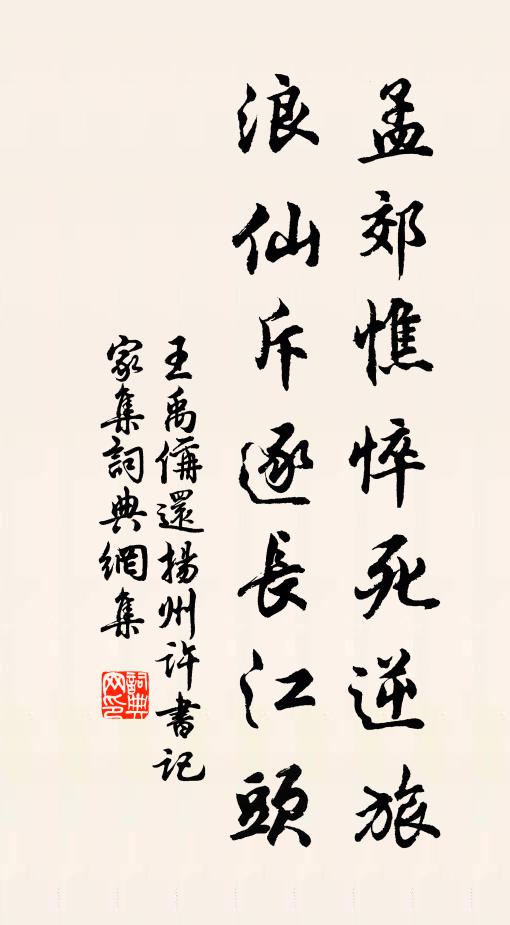 孟郊憔悴死逆旅
浪仙斥逐長江頭
王禹偁還揚州許書記
家集詞典網集
詞典网印